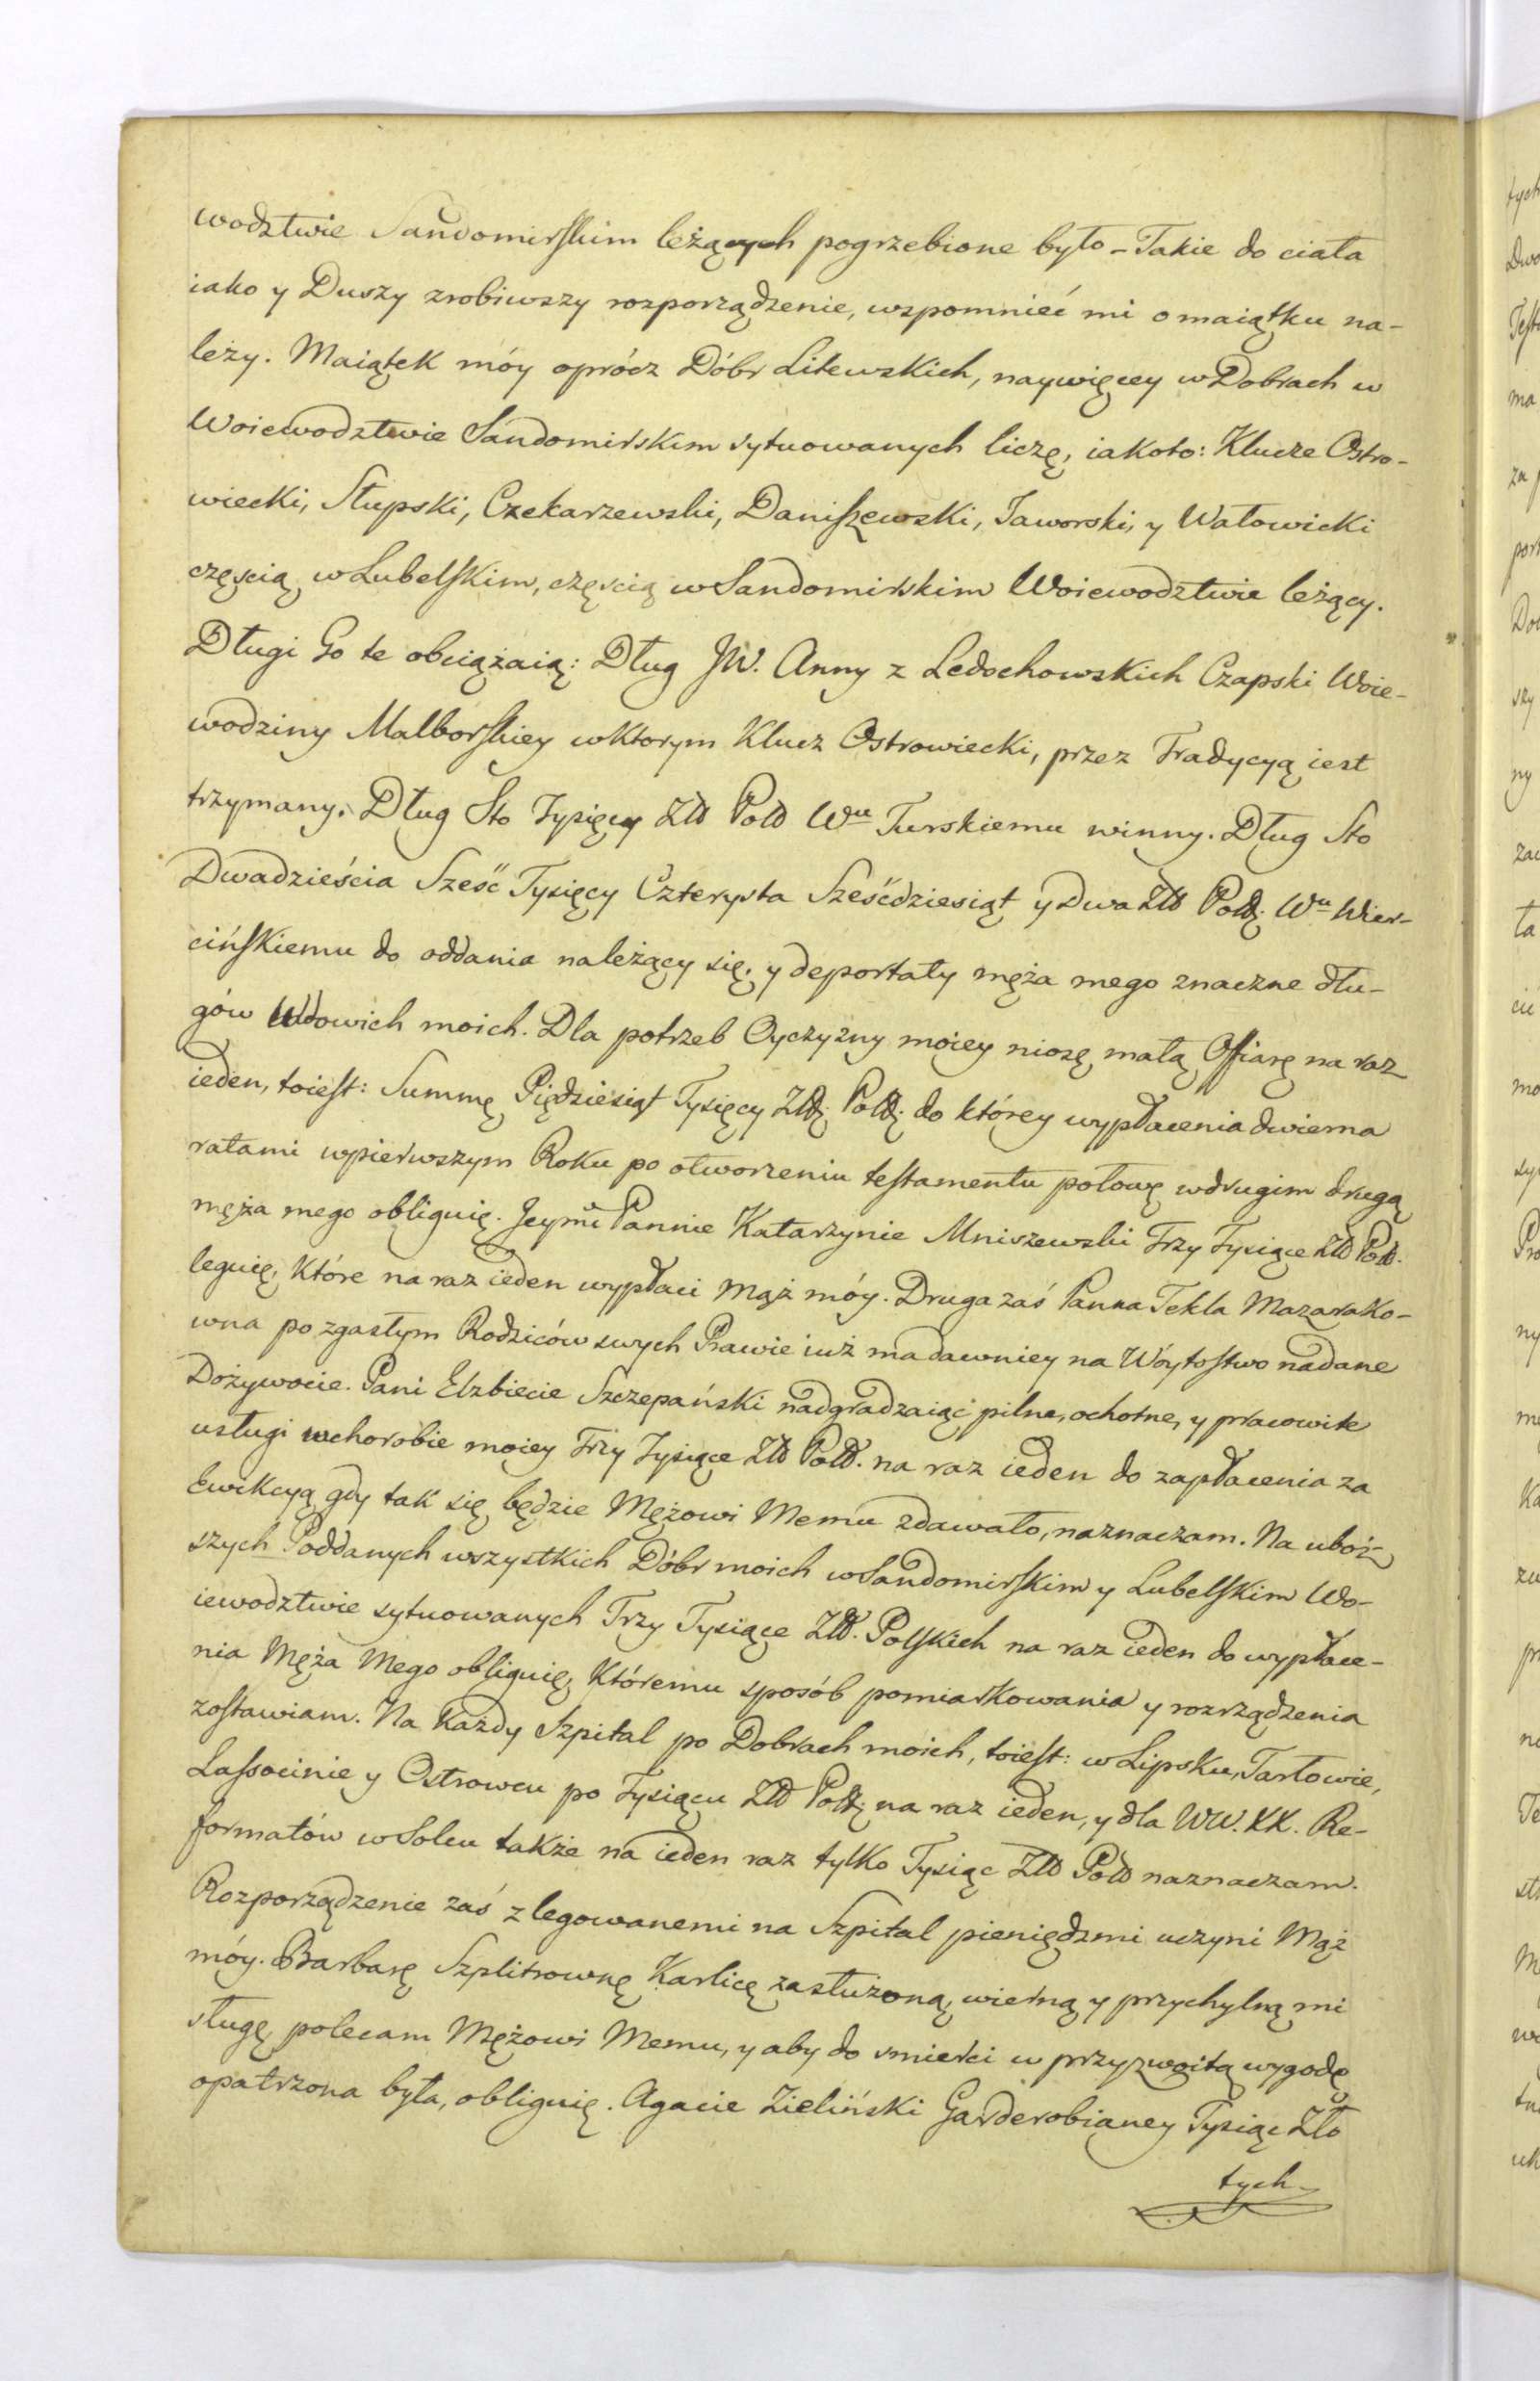 wodztwie Sandomirskim leżących pogrzebione było – Takie do ciała
iako y Duszy zrobiwszy rozporządzenie, wspomnieć mi o maiątku na-
leży. Maiątek móy oprócz Dóbr Litewskich, naywięcey w Dobrach w
Woiewodztwie Sandomirskim sytuowanych liczę, iakoto: Klucze Ostro-
wiecki, Słupski, Czekarzewski, Daniszewski, Jaworski, y Wałowicki
częscią w Lubelskim, częscią w Sandomirskim Woiewodztwie leżący.
Długi Go te obciążaią: Dług JW. Anny z Ledochowskich Czapski Woie-
wodziny Malborskiey w ktorym Klucz Ostrowiecki, przez Tradycyą iest
trzymany. Dług Sto Tysięcy Złł Poll Wu Turskiemu winny. Dług Sto
Dwadzieścia Sześć Tysięcy Czterysta Sześćdziesiąt y Dwa Złł Poll: Wu Wier-
cińskiemu do oddania należący się, y deportaty męża mego znaczne dłu-
gów Wdowich moich. Dla potrzeb Oyczyzny moiey niosę małą Offiarę na raz
ieden, toiest: Summę Piędziesiąt Tysięcy Złł: Poll: do którey wypłacenia dwiema
ratami w pierwszym Roku po otworzeniu testamentu połowę w drugim drugą
męża mego obliguię. Jeymć Pannie Katarzynie Mniszewski Trzy Tysiące Złł Poll.
leguię, Które na raz ieden wypłaci Mąż móy. Druga zaś Panna Tekla Mazarako-
wna po zgasłym Rodziców swych Prawie iuż ma dawniey na Wóytostwo nadane
Dożywocie. Pani Elzbiecie Szczepański nadgradzaiąć pilne, ochotne, y pracowite
usługi w chorobie moiey Trzy Tysiące Złł Poll. na raz ieden do zapłacenia za
Ewikcyą gdy tak się będzie Mężowi Memu zdawało, naznaczam. Na uboż-
szych Poddanych wszystkich Dóbr moich w Sandomirskim y Lubelskim Wo-
iewodztwie sytuowanych Trzy Tysiące Złł. Polskich na raz ieden do wypłace-
nia Męża Mego obliguię, Któremu sposób pomiarkowania y rozrządzenia
zostawiam. Na Każdy Szpital po Dobrach moich, toiest: w Lipsku, Tarłowie,
Lassocinie y Ostrowcu po Tysiącu Złł Poll: na raz ieden, y dla WW. XX. Re-
formatów w Solcu także na ieden raz tylko Tysiąc Złł Poll naznaczam.
Rozporządzenie zaś z legowanemi na Szpital pieniędzmi uczyni Mąż
móy. Barbarę Szplitrownę Karlicę zasłużoną, wierną y przychylną mi
sługę, polecam Mężowi Memu, y aby do smierci w przyzwoitą wygodę
opatrzona była, obliguię. Agacie Zieliński Garderobianey Tysiąc Zło
tych